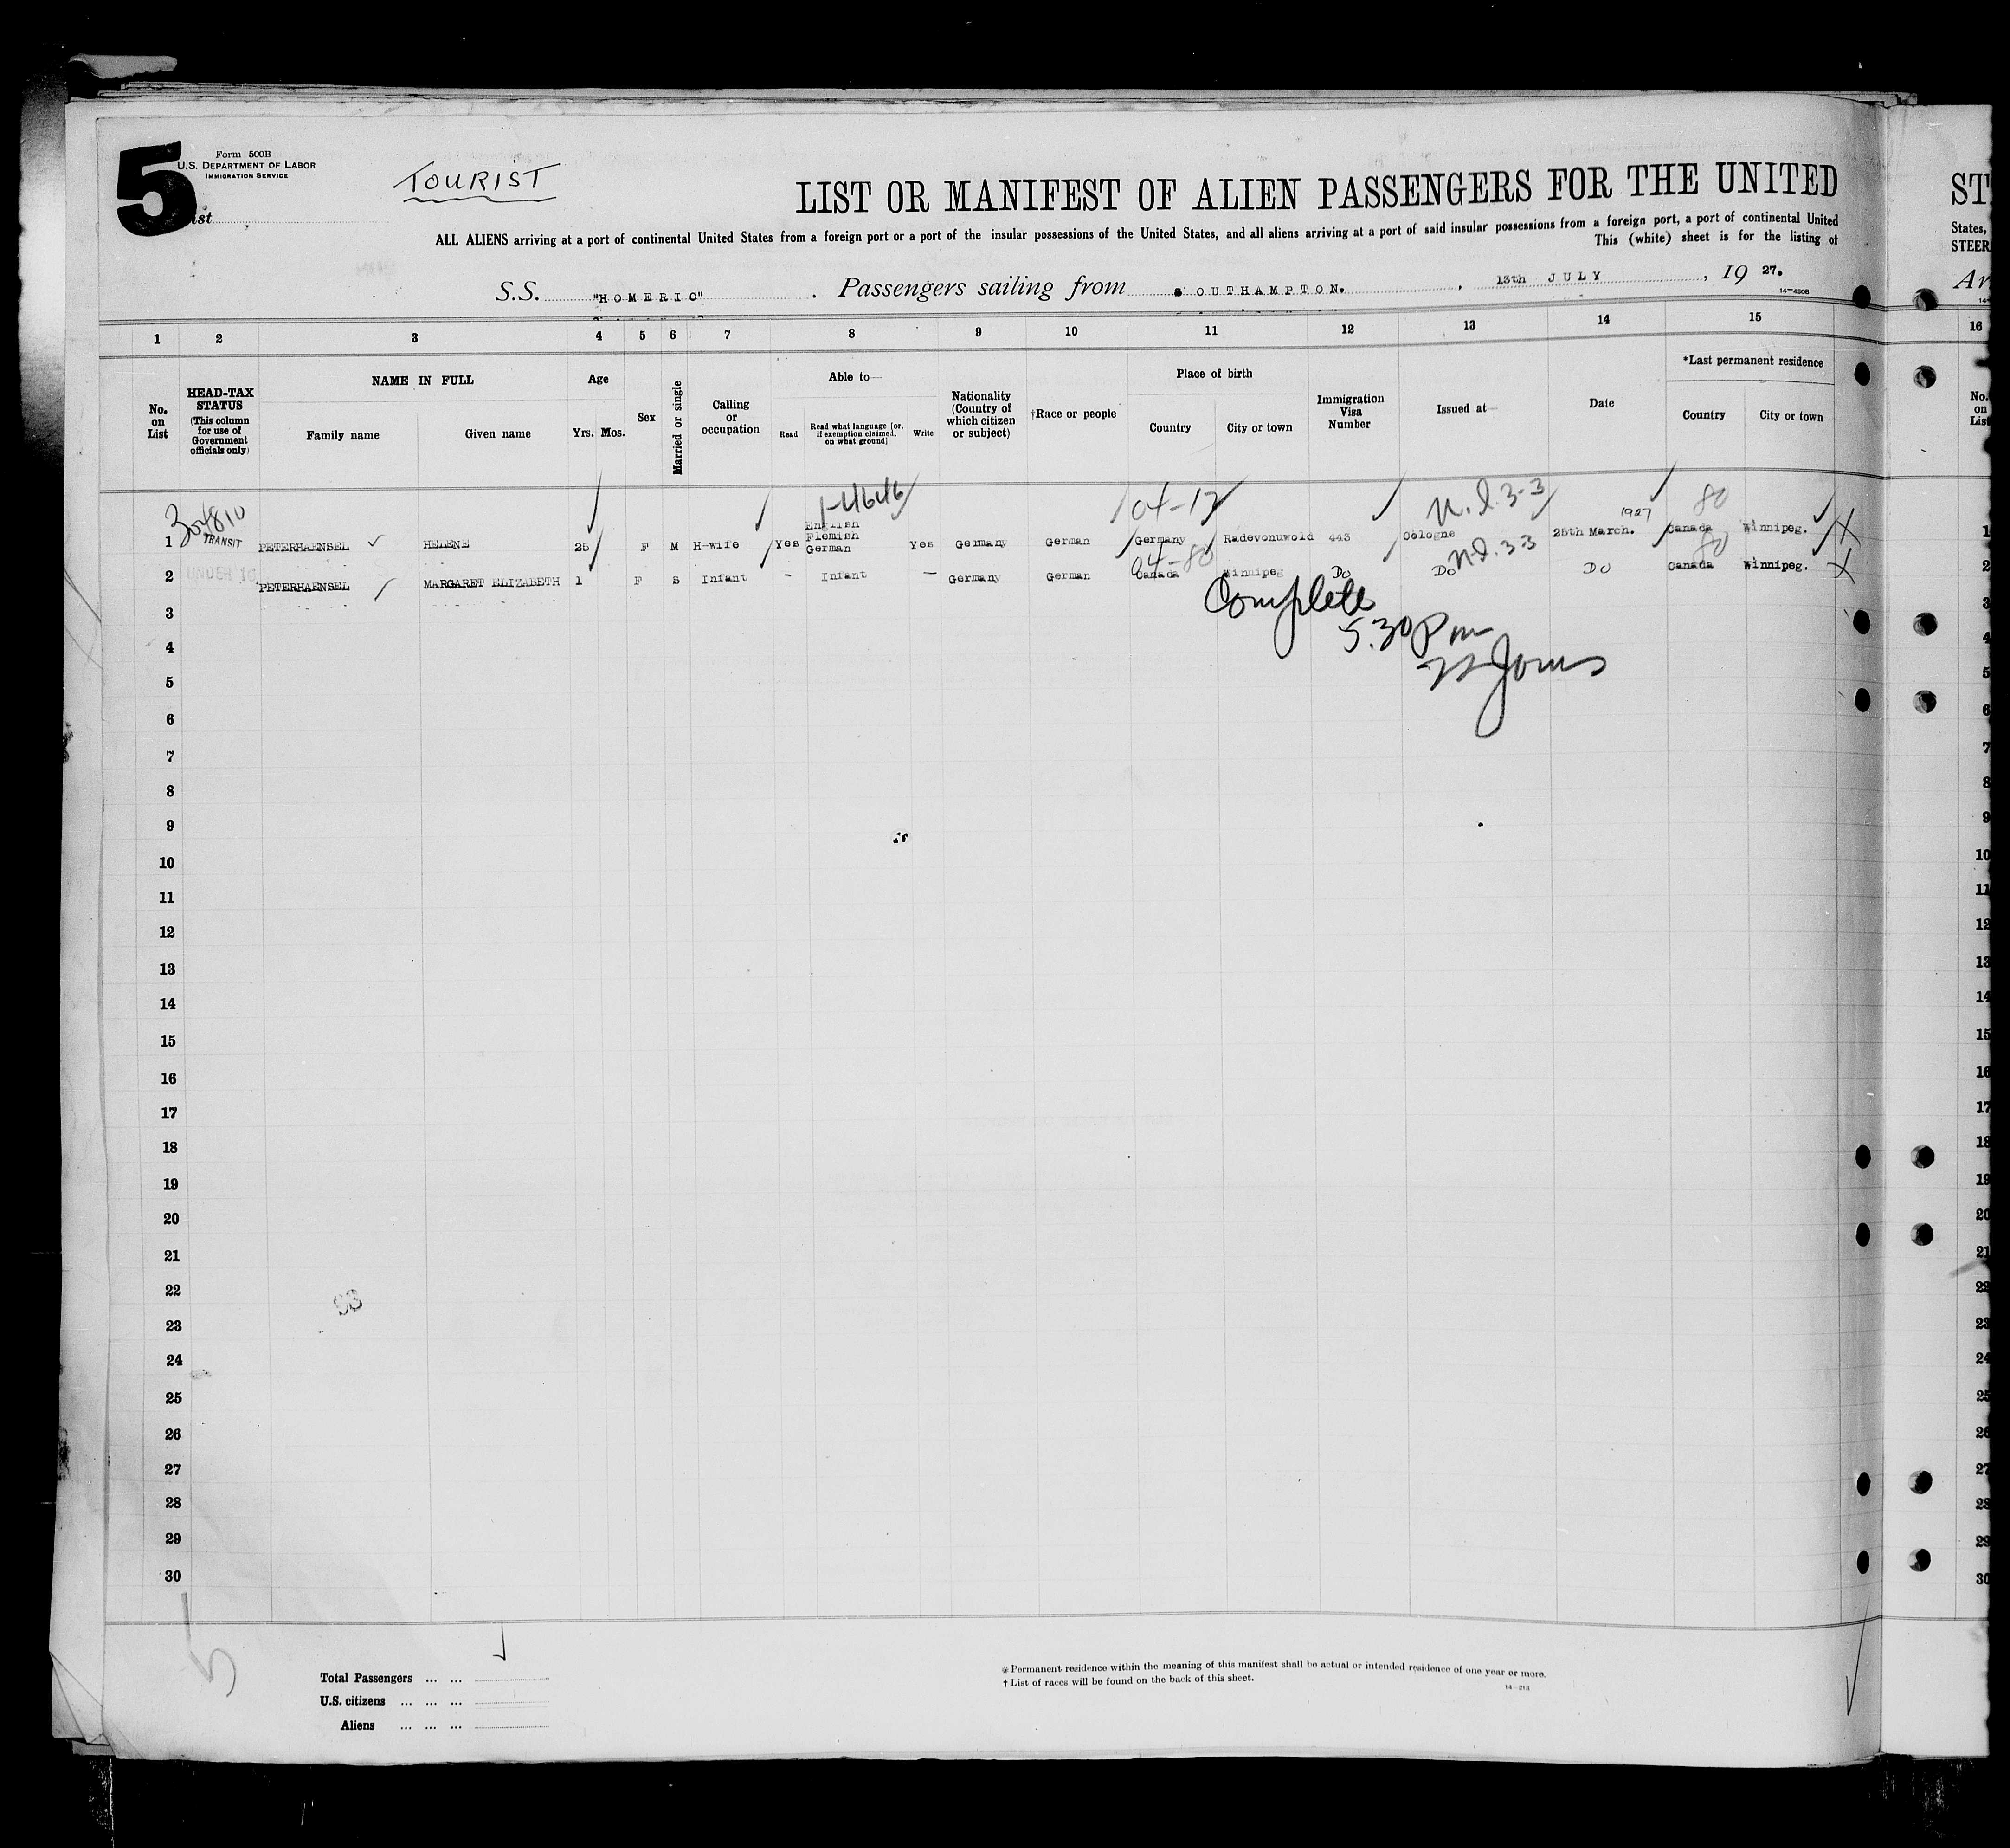 5
Form 500B
U.S. DEPARTMENT OF LABOR
IMMIGRATION SERVICE
TOURIST
ist
LIST OR MANIFEST OF ALIEN PASSENGERS FOR THE UNITED
ST
ALL ALIENS arriving at a port of continental United States from a foreign port or a port of the insular possessions of the United States, and all aliens arriving at a port of said insular possessions from a foreign port, a port of continental United
States,
This (white) sheet is for the listing of
STEER
S.S. "HOMERIC" . Passengers sailing from SOUTHAMPTON. , 13th JULY , 19 27.
Ar
14-430B
1 2 3 4 5 6 7 8 9 10 11 12 13 14 15 16
No. on List
HEAD-TAX STATUS
(This column for use of Government officials only)
NAME IN FULL
Family name Given name
Age
Yrs. Mos.
Sex
Married or single
Calling or occupation
Able to—
Read
Read what language [or, if exemption claimed, on what ground]
Write
Nationality (Country of which citizen or subject)
†Race or people
Place of birth
Country City or town
Immigration Visa Number
Issued at—
Date
*Last permanent residence
Country City or town
No. on List
1-4646 04-17 80
TRANSIT
1 PETERHAENSEL HELENE 25 F M H-wife Yes English Flemish German Yes Germany German Germany Radevonuwold 443 Cologne 25th March. 1927 Canada Winnipeg. 1
04-80 80
UNDER 16
2 PETERHAENSEL MARGARET ELIZABETH 1 F S Infant - Infant — Germany German Canada Winnipeg Do Do Do Canada Winnipeg. 2
Complete
5.30 Pm
Jones
3
4
5
6
7
8
9
10
11
12
13
14
15
16
17
18
19
20
21
22
93
23
24
25
26
27
28
29
30
5
Total Passengers ... ...
U.S. citizens ... ... ...
Aliens ... ... ...
* Permanent residence within the meaning of this manifest shall be actual or intended residence of one year or more.
† List of races will be found on the back of this sheet.
14-213